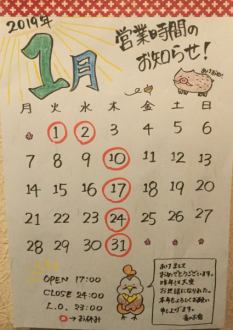 2019年
1月
営業時間の
お知らせ!
月 火 水 木 金 土 日
1 2 3 4 5 6
7 8 9 10 11 12 13
14 15 16 17 18 19 20
21 22 23 24 25 26 27
28 29 30 31
OPEN 17:00
CLOSE 24:00
L.O. 23:00
○→お休み
あけまして
おめでとうございます。
昨年は大変
お世話になりました。
本年もよろしくお願い
申し上げます。